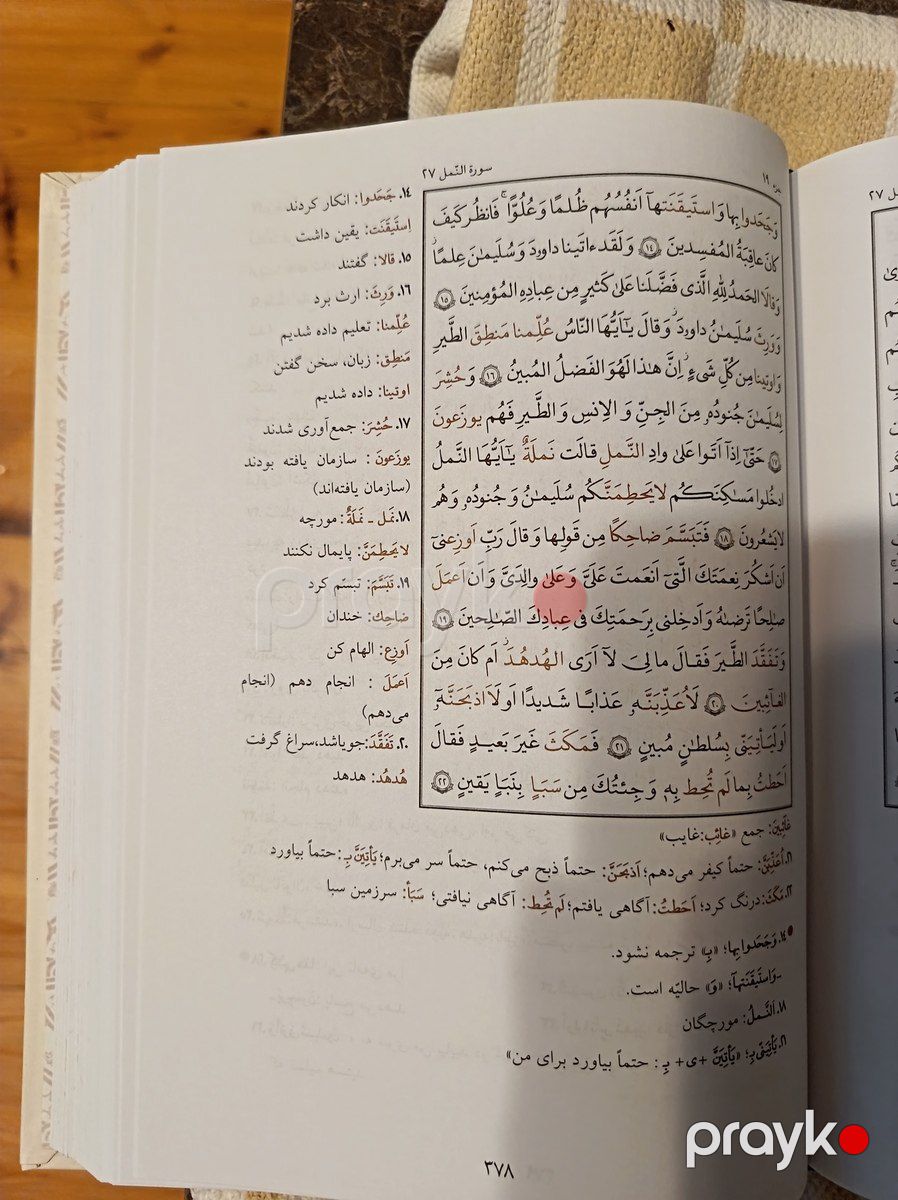 سورة النّمل ٢٧
١٩
وَجَحَدوا بِها وَاستَيقَنَتها اَنفُسُهُم ظُلمًا وَعُلُوًّا ۚ فَانظُر كَيفَ
كانَ عاقِبَةُ المُفسِدينَ ﴿١٤﴾ وَلَقَد ءاتَينا داوودَ وَسُلَيمٰنَ عِلمًا ۖ
وَقالَا الحَمدُ لِلّٰهِ الَّذی فَضَّلَنا عَلیٰ كَثيرٍ مِن عِبادِهِ المُؤمِنينَ ﴿١٥﴾
وَوَرِثَ سُلَيمٰنُ داوودَ ۖ وَقالَ يٰٓاَيُّهَا النّاسُ عُلِّمنا مَنطِقَ الطَّيرِ
وَاوتينا مِن كُلِّ شَیءٍ ۖ اِنَّ هٰذا لَهُوَ الفَضلُ المُبينُ ﴿١٦﴾ وَحُشِرَ
لِسُلَيمٰنَ جُنودُهٗ مِنَ الجِنِّ وَ الاِنسِ وَ الطَّيرِ فَهُم يوزَعونَ
﴿١٧﴾ حَتّیٰٓ اِذآ اَتَوا عَلیٰ وادِ النَّملِ قالَت نَملَةٌ يٰٓاَيُّهَا النَّملُ
ادخُلوا مَسٰكِنَكُم لا يَحطِمَنَّكُم سُلَيمٰنُ وَ جُنودُهٗ وَ هُم
لا يَشعُرونَ ﴿١٨﴾ فَتَبَسَّمَ ضاحِكًا مِن قَولِها وَ قالَ رَبِّ اَوزِعنیٓ
اَن اَشكُرَ نِعمَتَكَ الَّتیٓ اَنعَمتَ عَلَیَّ وَ عَلیٰ والِدَیَّ وَ اَن اَعمَلَ
صٰلِحًا تَرضٰهُ وَ اَدخِلنی بِرَحمَتِكَ فی عِبادِكَ الصّٰلِحينَ ﴿١٩﴾
وَ تَفَقَّدَ الطَّيرَ فَقالَ مالِیَ لآ اَرَی الهُدهُدَ ۖ اَم كانَ مِنَ
الغآئِبينَ ﴿٢٠﴾ لَاُعَذِّبَنَّهٗ عَذابًا شَديدًا اَو لَاَاذبَحَنَّهٗٓ
اَو لَيَأتِيَنّی بِسُلطٰنٍ مُبينٍ ﴿٢١﴾ فَمَكَثَ غَيرَ بَعيدٍ فَقالَ
اَحَطتُ بِما لَم تُحِط بِهٖ وَ جِئتُكَ مِن سَبَاٍ بِنَبَاٍ يَقينٍ ﴿٢٢﴾
١٤. جَحَدوا: انکار کردند
اِستَيقَنَت: یقین داشت
١٥. قالا: گفتند
١٦. وَرِثَ: ارث برد
عُلِّمنا: تعلیم داده شدیم
مَنطِق: زبان، سخن گفتن
اوتینا: داده شدیم
١٧. حُشِرَ: جمع‌آوری شدند
یوزَعونَ: سازمان یافته بودند
(سازمان یافته‌اند)
١٨. نَمل ـ نَملَةٌ: مورچه
لا یَحطِمَنَّ: پایمال نکنند
١٩. تَبَسَّمَ: تبسّم کرد
ضاحِك: خندان
اَوزِع: الهام کن
اَعمَلَ: انجام دهم (انجام
می‌دهم)
٢٠. تَفَقَّدَ: جویا شد، سراغ گرفت
هُدهُد: هدهد
غآئِبینَ: جمع «غائِب: غایب»
٢١. اُعَذِّبَنَّ: حتماً کیفر می‌دهم؛ اَذبَحَنَّ: حتماً ذبح می‌کنم، حتماً سر می‌برم؛ یَأتِیَنَّ بِـ: حتماً بیاورد
٢٢. مَکَثَ: درنگ کرد؛ اَحَطتُ: آگاهی یافتم؛ لَم تُحِط: آگاهی نیافتی؛ سَبَأ: سرزمین سبا
١٤. وَجَحَدوا بِها؛ «بِ» ترجمه نشود.
-وَاستَیقَنَتهآ؛ «وَ» حالیّه است.
١٨. اَلنَّملُ: مورچگان
٢١. یَأتِیَنّی بِـ؛ «یَأتِیَنَّ +ی+ بِـ: حتماً بیاورد برای من»
٣٧٨
prayk
prayk